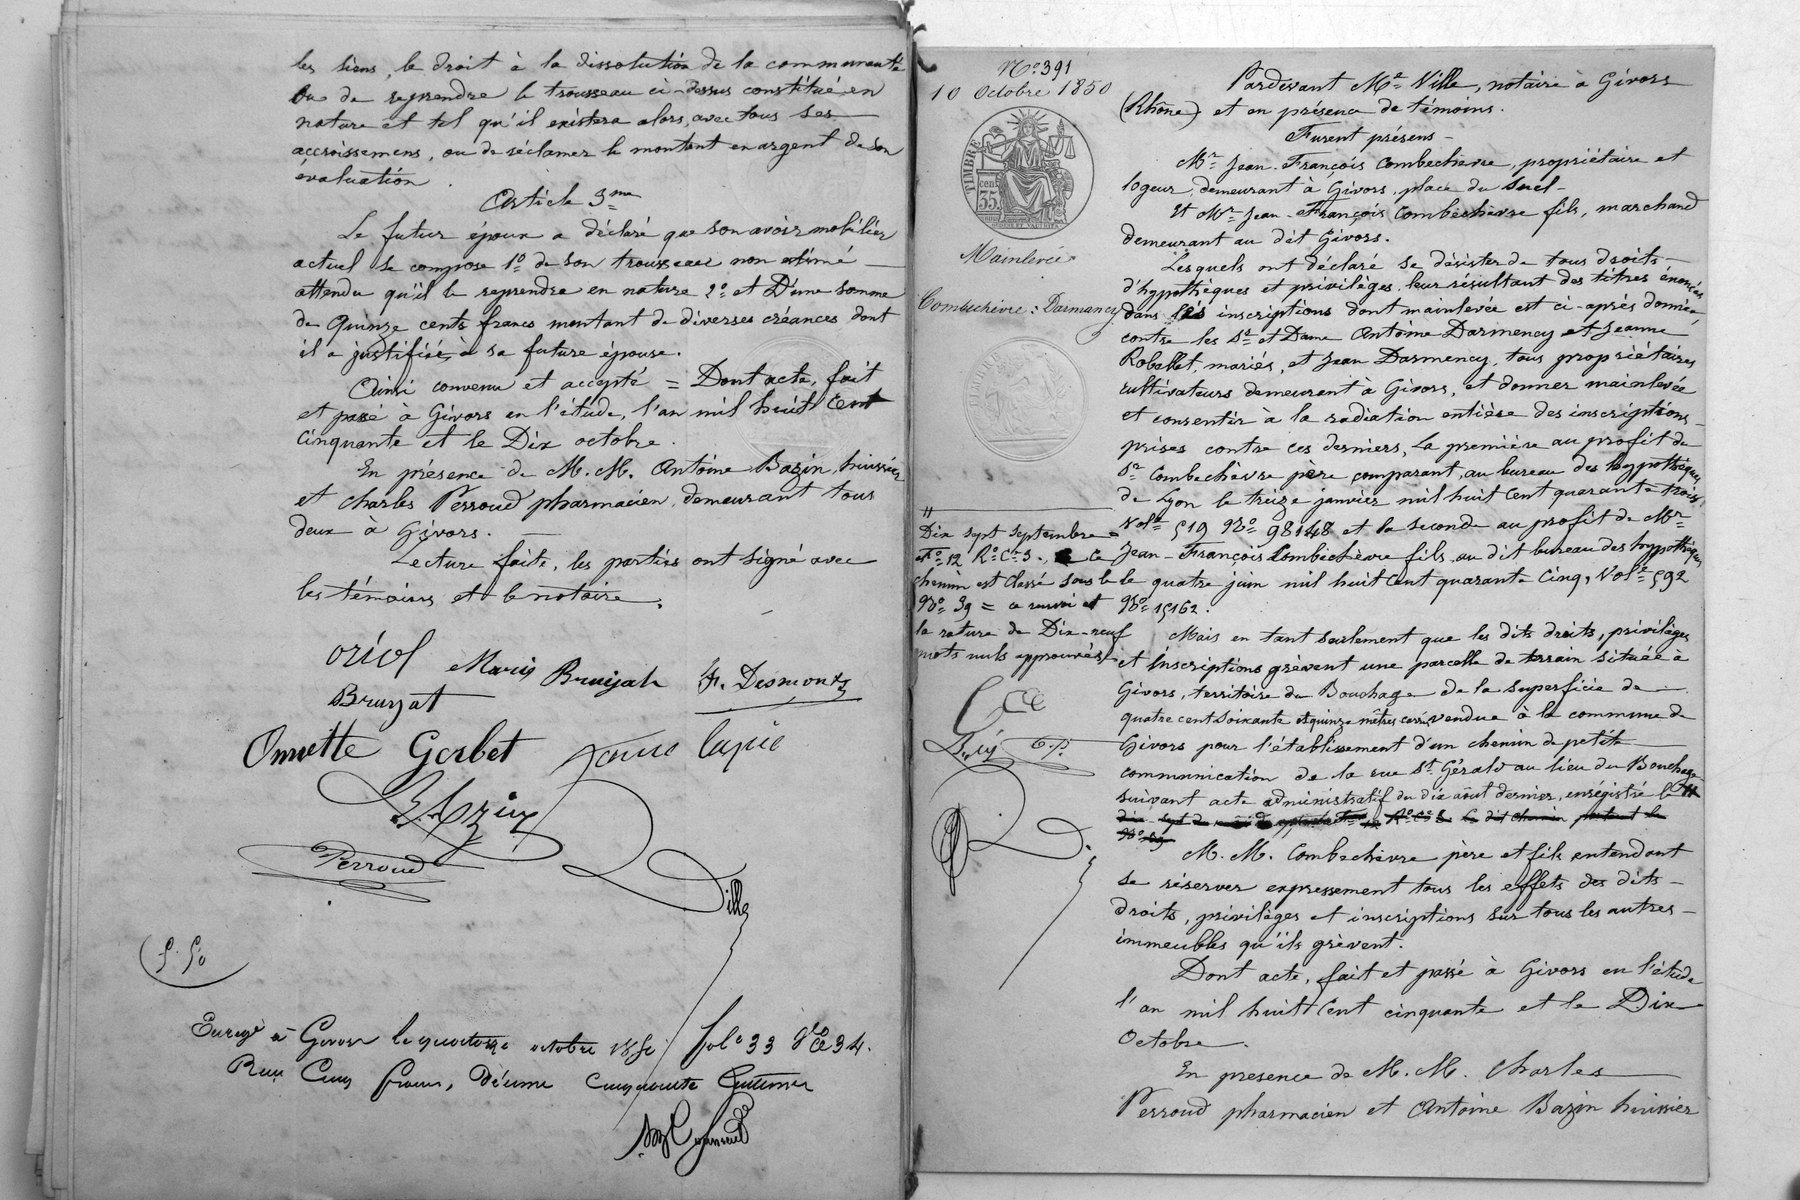 les siens, le droit à la dissolution de la communauté
ou de reprendre le trousseau ci-dessus constitué en
nature et tel qu'il existera alors, avec tous ses
accroissemens, ou de réclamer le montant en argent de son
évaluation.
Article 3me
Le futur époux a déclaré que son avoir mobilier
actuel se compose 1o de son trousseau non estimé
attendu qu'il le reprendra en nature 2o et D'une somme
de Quinze cents francs montant de diverses créances dont
il a justifié, à sa future épouse.
Ainsi convenu et accepté = Dont acte, fait
et passé à Givors en l'étude, l'an mil huit cent
cinquante et le Dix octobre.
En présence de M. M. Antoine Bazin huissier
et Charles Perroud pharmacien, demeurant tous
deux à Givors.
Lecture faite, les parties ont signé avec
les témoins et le notaire.
oriol
F. Desmonts
Gerbet
Perroud
Ville
Givors le quatorze octobre fol 33
Cinq francs, Décime cinquante Centimes
No 391
10 Octobre 1850
TIMBRE
cent
35.
Mainlevée
Combechèvre : Darmancy
Dix sept septembre
fo 12 Ro Ce 3., ce
chemin est classé sous le
No 39 = ce renvoi et
la rature de Dix-neuf
mots nuls approuvés
Pardevant Me Ville, notaire à Givors
(Rhône) et en présence de témoins.
Furent présens
Mr Jean-François Combechèvre, propriétaire et
logeur, demeurant à Givors, place du Suel
Et Mr Jean-François Combechèvre fils, marchand
demeurant au dit Givors.
Lesquels ont déclaré se désister de tous droits
d'hypothèques et privilèges, leur résultant des titres énoncés
dans les inscriptions dont mainlevée est ci-après donnée,
contre les Sr et Dame Antoine Darmency et Jeanne
Robellet, mariés, et Jean Darmency, tous propriétaires
cultivateurs demeurant à Givors, et donner mainlevée
et consentir à la radiation entière des inscriptions
prises contre ces derniers, La première au profit de
Sr Combechèvre père comparant, au bureau des hypothèques
de Lyon le treize janvier mil huit cent quarante trois,
Vole 519 No 98148 et la seconde au profit de Mr
Jean-François Combechèvre fils, au dit bureau des hypothèques
le quatre juin mil huit cent quarante cinq, Vole 592
No 15162.
Mais en tant seulement que les dits droits, privilèges
et inscriptions grèvent une parcelle de terrain située à
Givors, territoire du Bouchage de la superficie de
quatre cent soixante et quinze mètres carrés vendue à la commune de
Givors pour l'établissement d'un chemin de petite
communication de la rue St Gérald au lieu du Bouchage
suivant acte administratif du dix août dernier, enregistré le
dix-sept de Ro Ce 3 Le dit chemin portant le
No 39
M. M. Combechèvre père et fils entendant
se réserver expressement tous les effets des dits
droits, privilèges et inscriptions sur tous les autres
immeubles qu'ils grèvent.
Dont acte, fait et passé à Givors en l'étude
l'an mil huit cent cinquante et le Dix
Octobre.
En presence de M. M. Charles
Perroud pharmacien et Antoine Bazin huissier